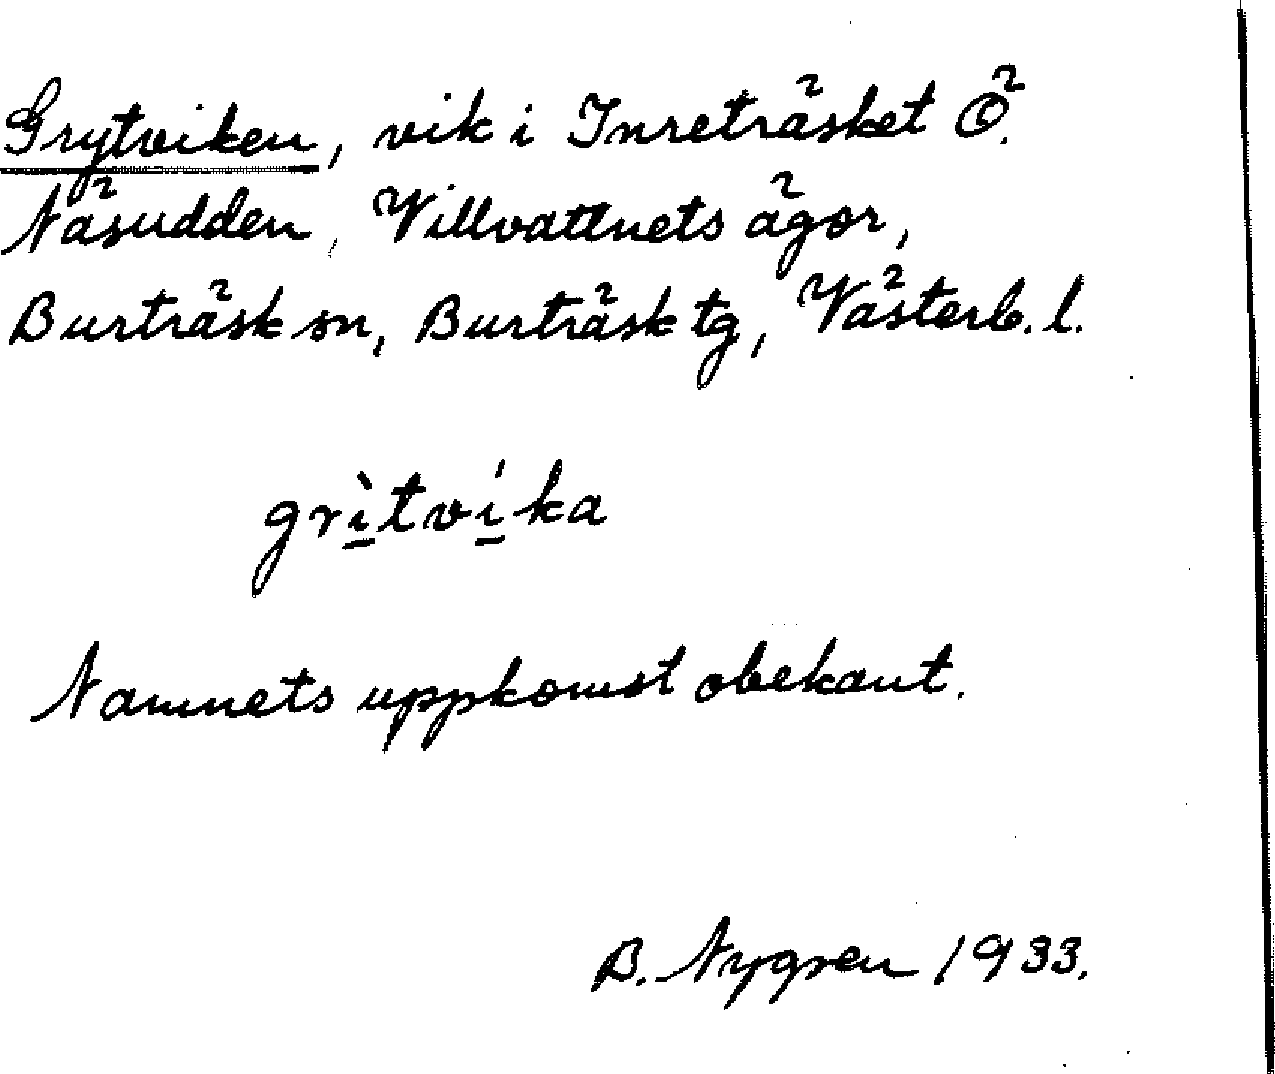 Grytviken, vik i Inreträsket Ö.
Näsudden, Villvattnets ägor,
Burträsk sn, Burträsk tg, Västerb. l.
grìtvíka
Namnets uppkomst obekant.
B. Nygren 1933.